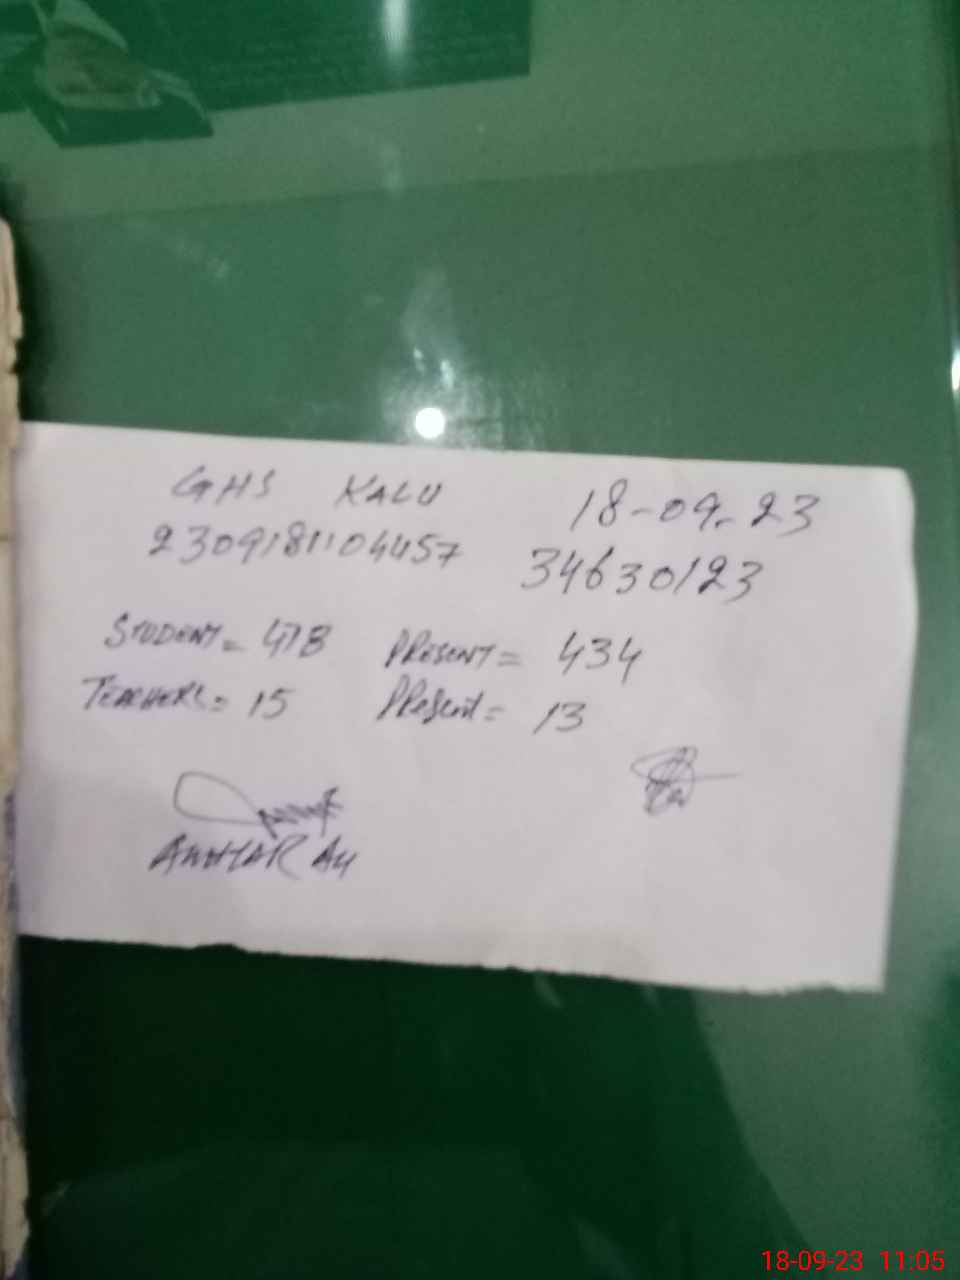 GHS KALU 18-09-23
2309181104457 34630123
STUDENT= 478 PRESENT= 434
TEACHERS= 15 PReSent= 13
18-09-23 11:05